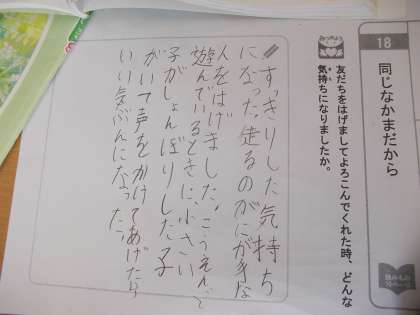 18
同じなかまだから
友だちをはげましてよろこんでくれた時、どんな
気持ちになりましたか。
すっきりした気持ち
になった。走るのがにが手な
人をはげました。こうえんで
遊んでいるときに、小さい
子がしょんぼりした子
がいて声をかけてあげたら
いい気ぶんになった。